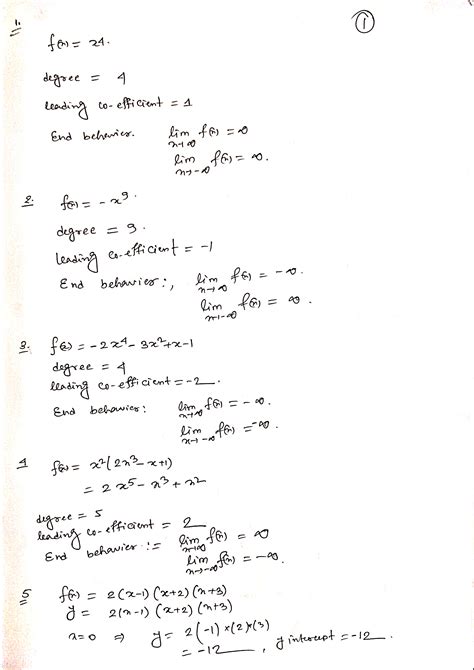 1
1.
f(x) = x4.
degree = 4
leading co-efficient = 1
End behavior. lim x→∞ f(x) = ∞
lim x→-∞ f(x) = ∞.
2. f(x) = -x^9.
degree = 9.
leading co-efficient = -1
End behavior:, lim x→∞ f(x) = -∞.
lim x→-∞ f(x) = ∞.
3. f(x) = -2x^4 - 3x^2 + x - 1
degree = 4
leading co-efficient = -2.
End behavior: lim x→∞ f(x) = -∞.
lim x→-∞ f(x) = -∞.
4 f(x) = x^2(2x^3 - x + 1)
= 2x^5 - x^3 + x^2
degree = 5
leading co-efficient = 2
End behavior := lim x→∞ f(x) = ∞
lim x→-∞ f(x) = -∞.
5 f(x) = 2(x-1)(x+2)(x+3)
y = 2(x-1)(x+2)(x+3)
x=0 ⇒ y = 2(-1)×(2)×(3)
= -12, y intercept = -12.